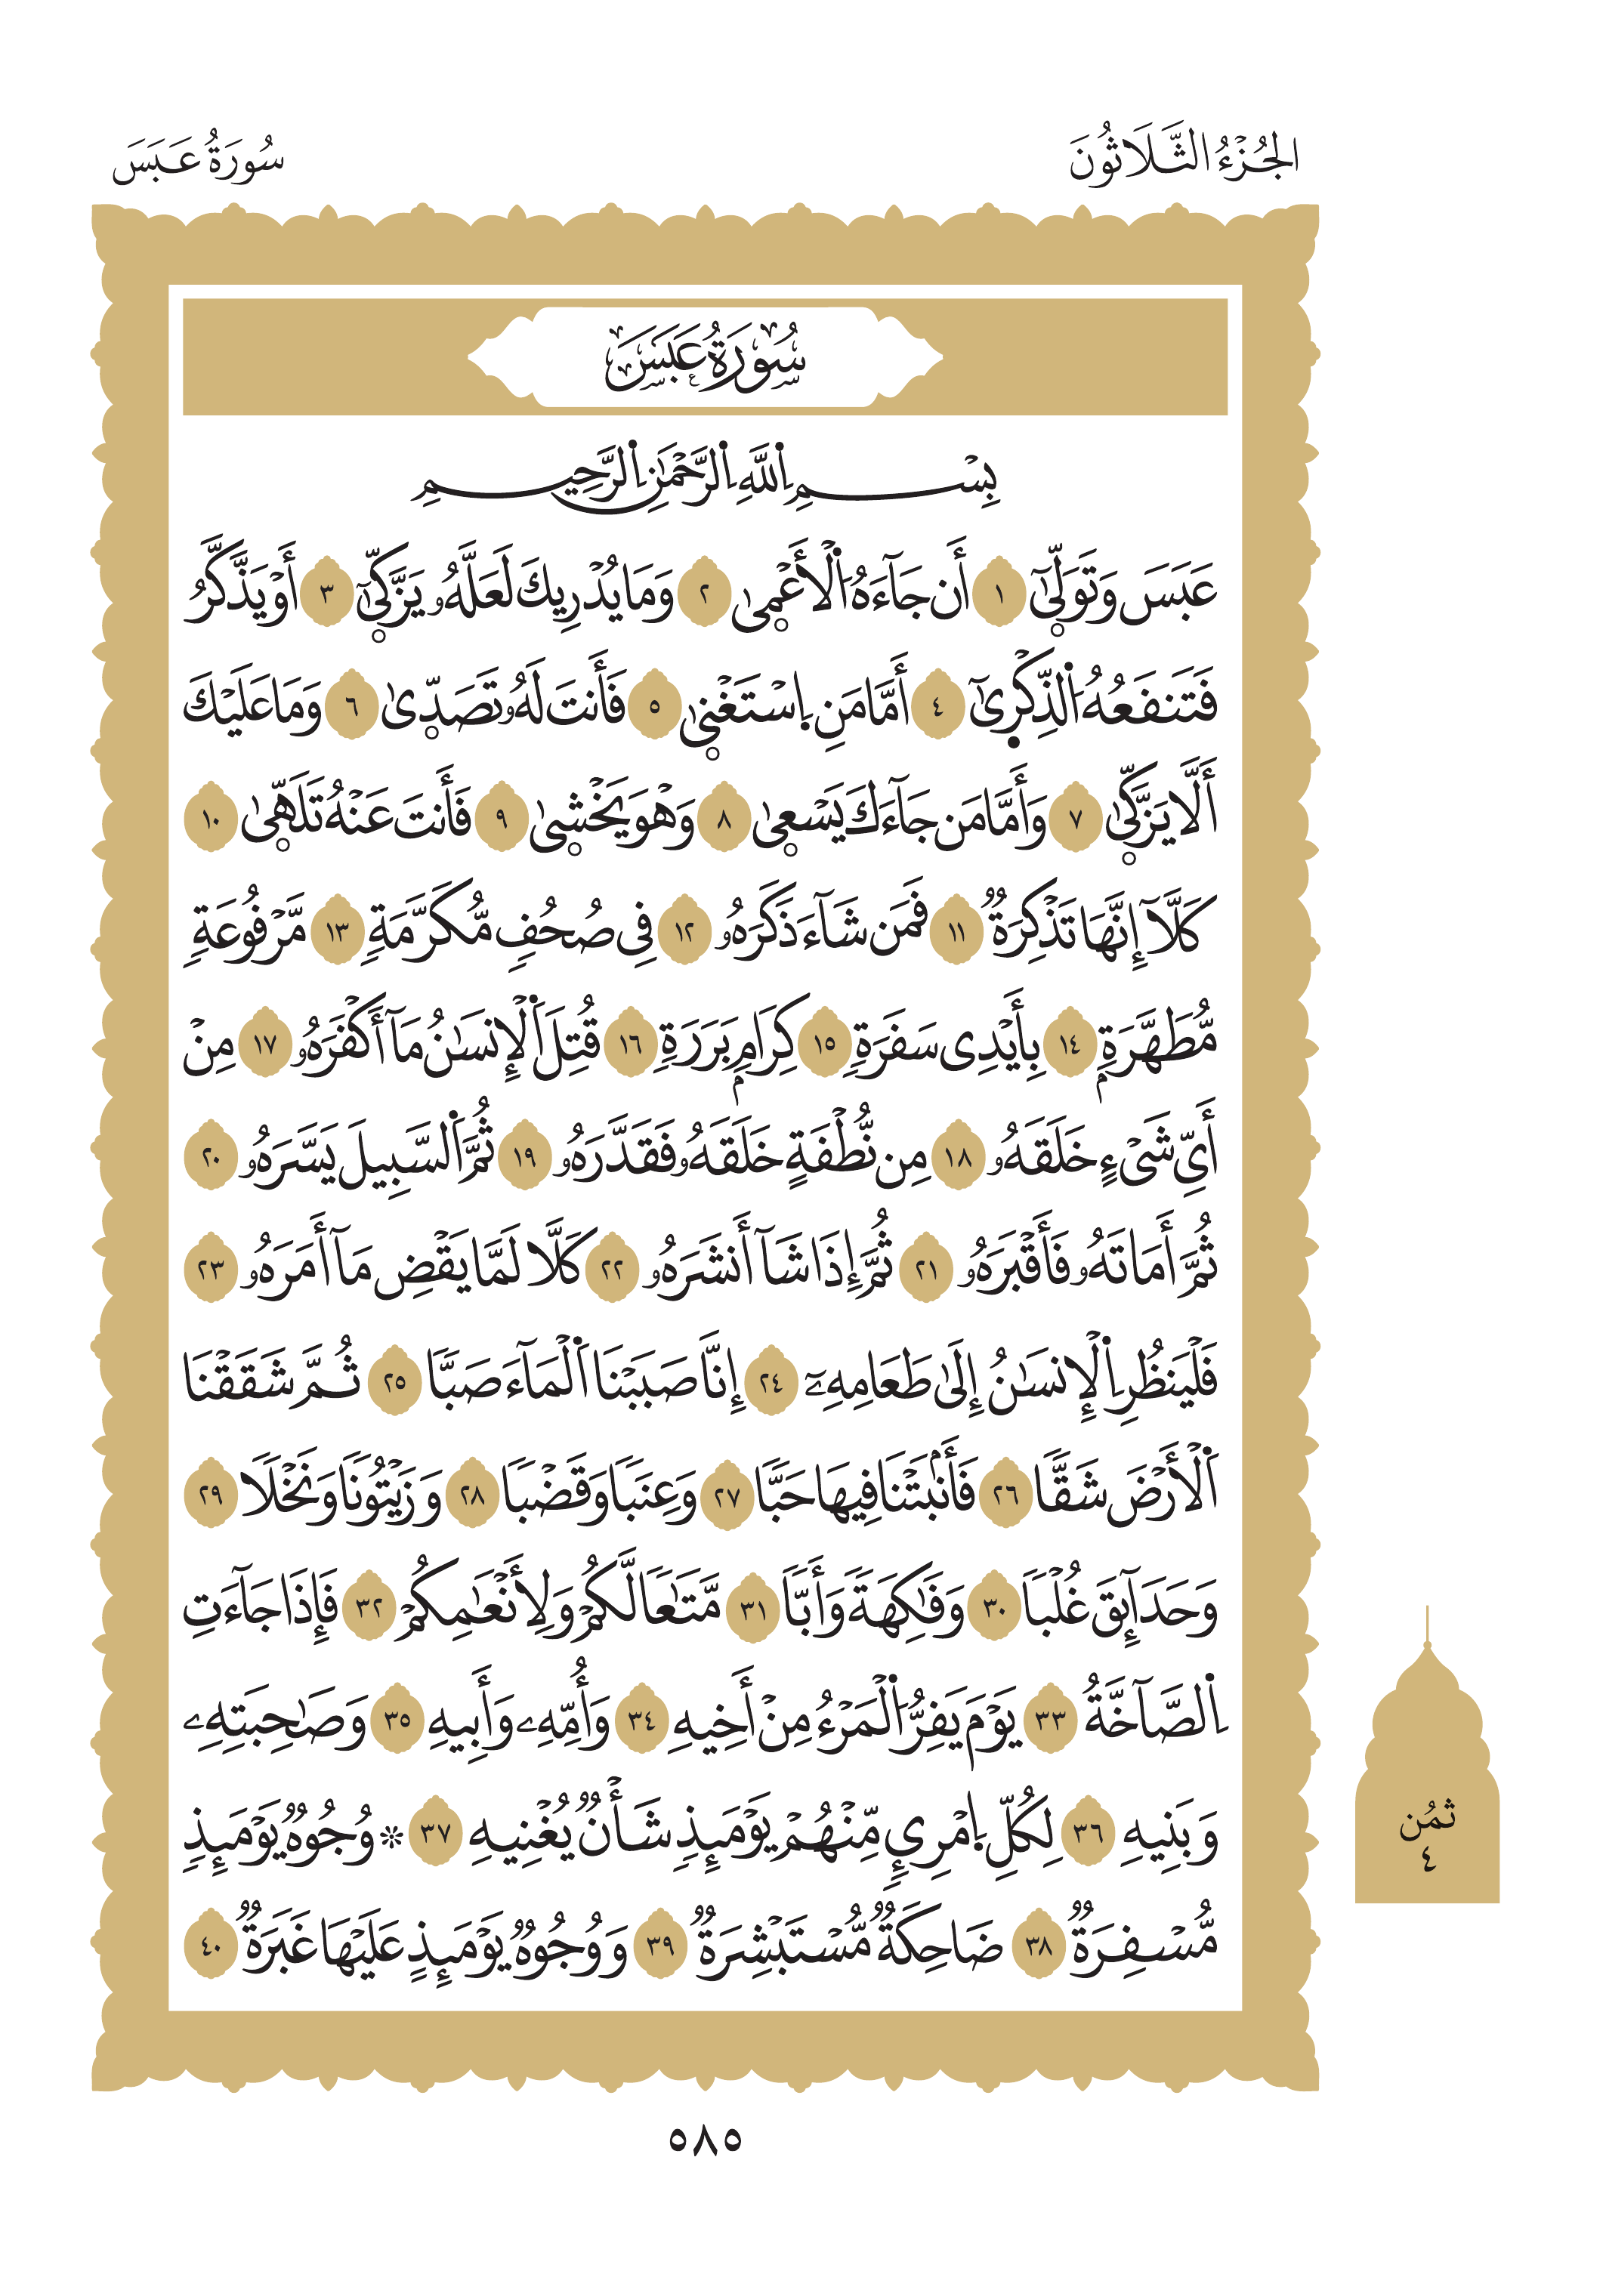 الجُزْءُ الثَّلَاثُونَ
سُورَةُ عَبَسَ
سُورَةُ عَبَسَ
بِسْمِ اِ۬للَّهِ اِ۬لرَّحْمَٰنِ اِ۬لرَّحِيمِ
عَبَسَ وَتَوَلّ۪ىٰٓ ١ أَن جَآءَهُ اَ۬لْأَعْم۪ىٰ ٢ وَمَا يُدْرِيكَ لَعَلَّهُۥ يَزَّكّ۪ىٰٓ ٣ أَوْ يَذَّكَّرُ
فَتَنفَعُهُ اُ۬لذِّكْر۪ىٰٓ ٤ أَمَّا مَنِ اِ۪سْتَغْن۪ىٰ ٥ فَأَنتَ لَهُۥ تَصَدّ۪ىٰ ٦ وَمَا عَلَيْكَ
أَلَّا يَزَّكّ۪ىٰ ٧ وَأَمَّا مَن جَآءَكَ يَسْع۪ىٰ ٨ وَهْوَ يَخْش۪ىٰ ٩ فَأَنتَ عَنْهُ تَلَهّ۪ىٰ ١٠
كَلَّآ إِنَّهَا تَذْكِرَةٌ ١١ فَمَن شَآءَ ذَكَرَهُۥ ١٢ فِى صُحُفٍ مُّكَرَّمَةٍ ١٣ مَّرْفُوعَةٍ
مُّطَهَّرَةِۢ ١٤ بِأَيْدِى سَفَرَةٍ ١٥ كِرَامِۢ بَرَرَةٍ ١٦ قُتِلَ اَ۬لْإِنسَٰنُ مَآ أَكْفَرَهُۥ ١٧ مِنْ
أَيِّ شَىْءٍ خَلَقَهُۥ ١٨ مِن نُّطْفَةٍ خَلَقَهُۥ فَقَدَّرَهُۥ ١٩ ثُمَّ اَ۬لسَّبِيلَ يَسَّرَهُۥ ٢٠
ثُمَّ أَمَاتَهُۥ فَأَقْبَرَهُۥ ٢١ ثُمَّ إِذَا شَآ أَنشَرَهُۥ ٢٢ كَلَّا لَمَّا يَقْضِ مَآ أَمَرَهُۥ ٢٣
فَلْيَنظُرِ اِ۬لْإِنسَٰنُ إِلَىٰ طَعَامِهِۦٓ ٢٤ إِنَّا صَبَبْنَا اَ۬لْمَآءَ صَبًّا ٢٥ ثُمَّ شَقَقْنَا
اَ۬لْأَرْضَ شَقًّا ٢٦ فَأَنۢبَتْنَا فِيهَا حَبًّا ٢٧ وَعِنَبًا وَقَضْبًا ٢٨ وَزَيْتُونًا وَنَخْلًا ٢٩
وَحَدَآئِقَ غُلْبًا ٣٠ وَفَٰكِهَةً وَأَبًّا ٣١ مَّتَٰعًا لَّكُمْ وَلِأَنْعَٰمِكُمْ ٣٢ فَإِذَا جَآءَتِ
اِ۬لصَّآخَّةُ ٣٣ يَوْمَ يَفِرُّ اُ۬لْمَرْءُ مِنْ أَخِيهِ ٣٤ وَأُمِّهِۦ وَأَبِيهِ ٣٥ وَصَٰحِبَتِهِۦ
وَبَنِيهِ ٣٦ لِكُلِّ اِ۪مْرِيٍٕ مِّنْهُمْ يَوْمَئِذٍ شَأْنٌ يُغْنِيهِ ٣٧ ۞ وُجُوهٌ يَوْمَئِذٍ
مُّسْفِرَةٌ ٣٨ ضَاحِكَةٌ مُّسْتَبْشِرَةٌ ٣٩ وَوُجُوهٌ يَوْمَئِذٍ عَلَيْهَا غَبَرَةٌ ٤٠
ثمُن
٤
٥٨٥